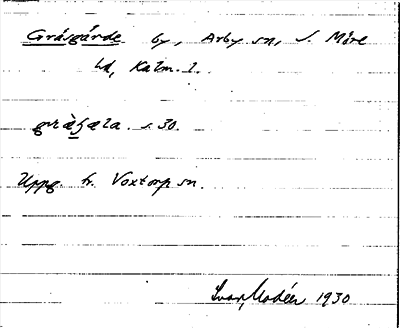 Gräsgärde by, Arby sn, S. Möre
hd, Kalm. l.
s. 30.
Uppg. fr. Voxtorp sn.
Ivar Modéer 1930